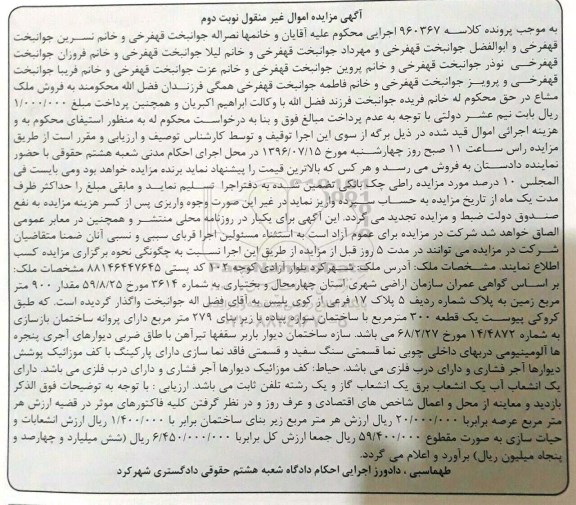 آگهی مزایده اموال غیر منقول نوبت دوم
به موجب پرونده کلاسه ۹۶۰۳۶۷ اجرایی محکوم علیه آقایان و خانمها نصراله جوانبخت قهفرخی و خانم نسرین جوانبخت
قهفرخی و ابوالفضل جوانبخت قهفرخی و مهرداد جوانبخت قهفرخی و خانم لیلا جوانبخت قهفرخی و خانم فروزان جوانبخت
قهفرخی نوذر جوانبخت قهفرخی و خانم پروین جوانبخت قهفرخی و خانم عزت جوانبخت قهفرخی و خانم فریبا جوانبخت
قهفرخی و پرویز جوانبخت قهفرخی و خانم فاطمه جوانبخت قهفرخی همگی فرزندان فضل الله محکومند به فروش ملک
مشاع در حق محکوم له خانم فریده جوانبخت فرزند فضل الله با وکالت ابراهیم اکبریان و همچنین پرداخت مبلغ ۱/۰۰۰/۰۰۰
ریال بابت نیم عشر دولتی با توجه به عدم پرداخت مبالغ فوق و بنا به درخواست محکوم له به منظور استیفای محکوم به و
هزینه اجرائی اموال قید شده در ذیل برگه از سوی این اجرا توقیف و توسط کارشناس توصیف و ارزیابی و مقرر است از طریق
مزایده راس ساعت ۱۱ صبح روز چهارشنبه مورخ ۱۳۹۶/۰۷/۱۵ در محل اجرای احکام مدنی شعبه هشتم حقوقی با حضور
نماینده دادستان به فروش می رسد و هر کس که بالاترین قیمت را پیشنهاد نماید برنده مزایده خواهد بود ومی بایست فی
المجلس ۱۰ درصد مورد مزایده راطی چک بانکی تضمین شده به دفتراجرا تسلیم نماید و مابقی مبلغ را حداکثر ظرف
مدت یک ماه از تاریخ مزایده به حساب سپرده واریز نماید در غیر این صورت وجوه واریزی پس از کسر هزینه مزایده به نفع
صندوق دولت ضبط و مزایده تجدید می گردد. این آگهی برای یکبار در روزنامه محلی منتشر و همچنین در معابر عمومی
الصاق خواهد شد شرکت در مزایده برای عموم آزاد است به استثناء مسئولین اجرا قربای سببی و نسبی آنان ضمنا متقاضیان
شرکت در مزایده می توانند در مدت ۵ روز قبل از مزایده از طریق این اجرا نسبت به چگونگی نحوه برگزاری مزایده کسب
اطلاع نمایند. مشخصات ملک: آدرس ملک: شهرکرد بلوار آزادی کوچه ۱۰۲ کد پستی ۸۸۱۴۶۴۴۷۶۴۵ مشخصات ملک:
بر اساس گواهی عمران سازمان اراضی شهری استان چهارمحال و بختیاری به شماره ۳۶۱۴ مورخ ۵۹/۸/۲۵ مقدار ۹۰۰ متر
مربع زمین به پلاک شماره ردیف ۵ پلاک ۱۷ فرعی از کوی پلیس به آقای فضل اله جوانبخت واگذار گردیده است. که طبق
کروکی پیوست یک قطعه ۳۰۰ مترمربع با ساختمان سوازه پیاده با زیر بنای ۲۷۹ متر مربع دارای پروانه ساختمان بازسازی
به شماره ۱۴/۴۸۷۲ مورخ ۶۸/۲/۲۷ می باشد. سازه ساختمان دیوار باربر سقفها تیرآهن با طاق ضربی دیوارهای آجری پنجره
ها آلومینیومی دربهای داخلی چوبی نما قسمتی سنگ سفید و قسمتی فاقد نما سازی دارای پارکینگ با کف موزائیک پوشش
دیوارها آجر فشاری و دارای درب فلزی می باشد. حیاط: کف موزائیک دیوارها آجر فشاری و دارای درب فلزی می باشد. دارای
یک انشعاب آب یک انشعاب برق یک انشعاب گاز و یک رشته تلفن ثابت می باشد. ارزیابی : با توجه به توضیحات فوق الذکر
بازدید و معاینه از محل و اعمال شاخص های اقتصادی و عرف روز و در نظر گرفتن کلیه فاکتورهای موثر در قضیه ارزش هر
متر مربع عرصه برابربا ۲۰/۰۰۰/۰۰۰ ریال ارزش هر متر مربع زیر بنای ساختمان برابر با ۱/۴۰۰/۰۰۰ ریال ارزش انشعابات و
حیات سازی به صورت مقطوع ۵۹/۴۰۰/۰۰۰ ریال جمعا ارزش کل برابربا ۶/۴۵۰/۰۰۰/۰۰۰ ریال (شش میلیارد و چهارصد و
پنجاه میلیون ریال) برآورد و اعلام می گردد.
طهماسبی ، دادورز اجرایی احکام دادگاه شعبه هشتم حقوقی دادگستری شهرکرد